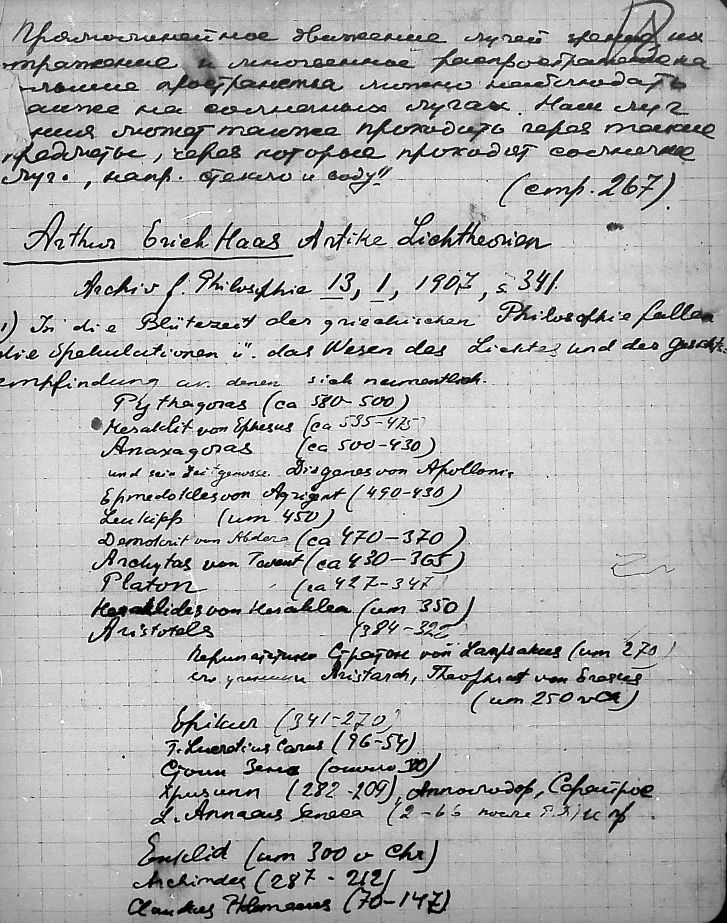 Прямолинейное движение лучей зрения, их
отражение и мгновенное распространение на
пространства можно наблюдать
также на солнечных лучах. Наш луч
может также проходить через такие
предметы, через которые проходят солнечные
луч., напр. стекло и воду"
(стр. 267).
Arthur Erich Haas Antike Lichtheorien
Archiv f. Philosophie 13, 1, 1907, s 341.
1) In die Blütezeit der griechischen Philosophie fallen
die Spekulationen ü. das Wesen des Lichtes und der Gesichts-
empfindung an denen sich namentlich.
Pythagoras (ca 580-500)
Heraklit von Ephesus (ca 535-475)
Anaxagoras (ca 500-430)
und sein Zeitgenosse Diogenes von Apollonia
Epmedokles von Agrigent (490-430)
Leukipp (um 450)
Demokrit von Abdera (ca 470-370)
Archytas von Tarent (ca 430-365)
Platon (ca 427-347)
Heraklides von Heraklea (um 350)
Aristoteles (384-322)
Перипатетики Стратон von Lampsakus (um 270)
его ученики Aristarch, Theophrast von Eresus
(um 250 v Ch)
Epikur (341-270)
T. Lucretius Carus (96-54)
Стоик Зено (около 300)
Хрисипп (282-209), Апполодор, Сфайрос
L. Annaeus Seneca (2-66 после Р.Х) и пр.
Euklid (um 300 v Chr)
Archimdes (287-212)
Claudius Ptolemaeus (70-147)